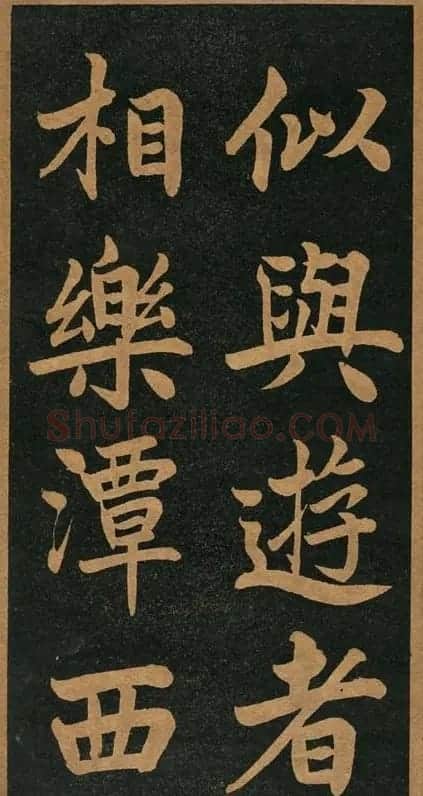 似與遊者
相樂潭西
Shufaziliao.COM